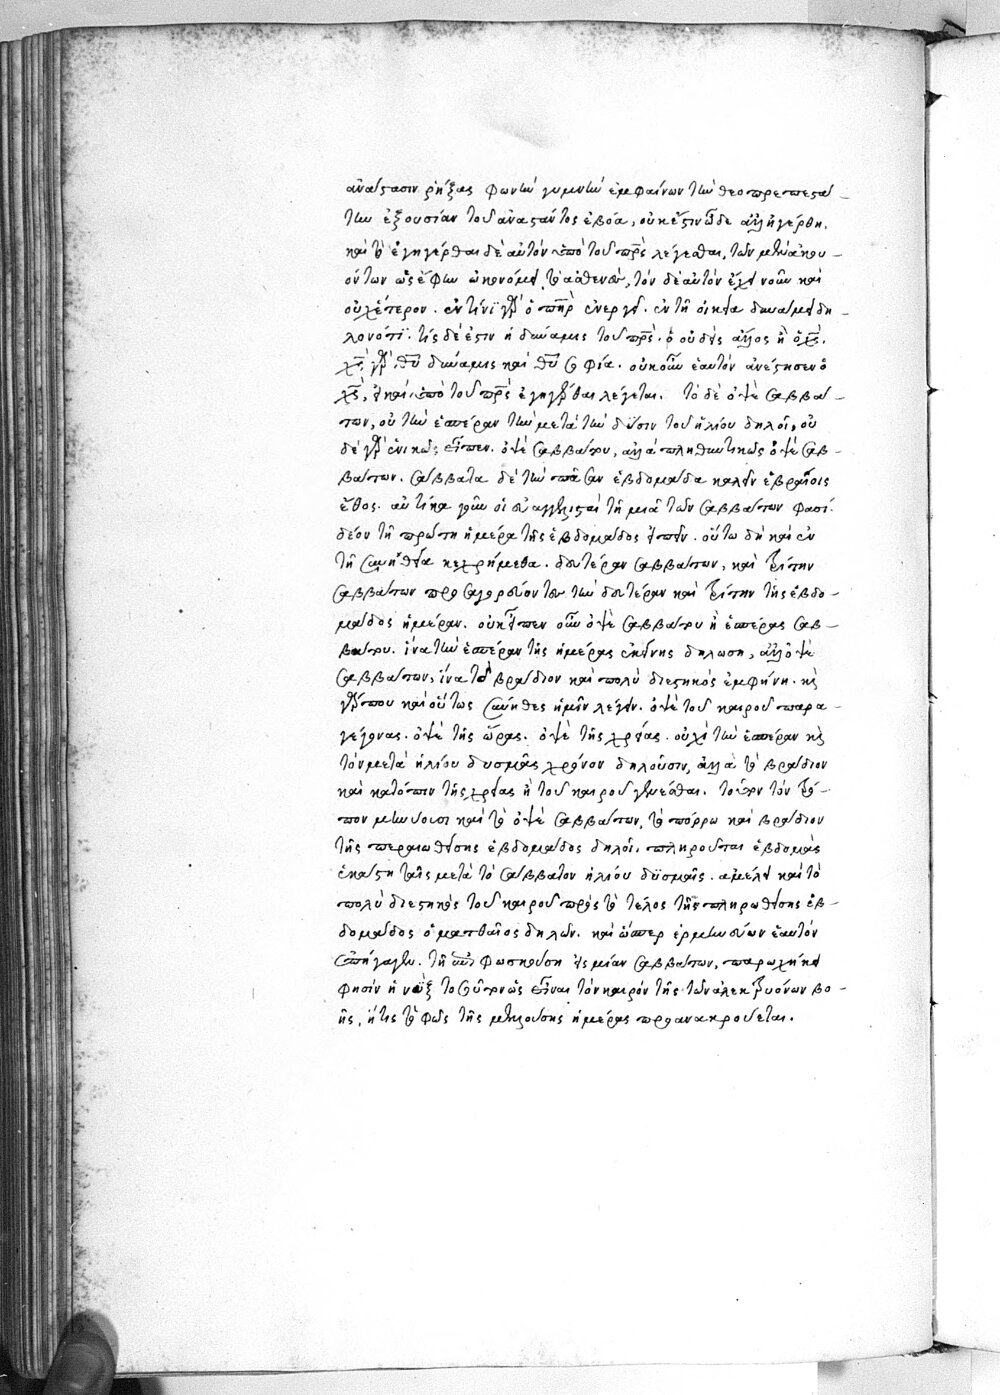 ἀνάστασιν ῥήξας φωνὴν γυμνὴν ἐμφαίνων τὴν θεοπρεπεστά-
την ἐξουσίαν τοῦ ἀναστάντος ἐβόα, οὐκ ἔστιν ὧδε ἀλλ' ἠγέρθη.
καὶ τὸ ἐγηγέρθαι δὲ αὐτὸν ὑπὸ τοῦ πρς λέγεσθαι, τῶν ἀκου-
όντων ὡς ἔφην ᾠκονόμει τὸ ἀσθενὲς, τὸν δὲ αὐτὸν ἔχει νοῦν καὶ
οὐχ ἕτερον. ἐν τίνι γὰρ ὁ πηρ ἐνεργεῖ. ἐν τῇ οἰκείᾳ δυνάμει δη-
λονότι. τίς δέ ἐστιν ἡ δύναμις τοῦ πρς. οὐδεὶς ἄλλος ἢ ὁ χς.
χς γὰρ θυ δύναμις καὶ θυ σοφία. οὐκοῦν ἑαυτὸν ἀνέστησεν ὁ
χς, εἰ καὶ ὑπὸ τοῦ πρς ἐγηγέρθαι λέγεται. τὸ δὲ ὀψὲ σαββά-
των, οὐ τὴν ἑσπέραν τὴν μετὰ τὴν δύσιν τοῦ ἡλίου δηλοῖ, οὐ
δὲ γὰρ ἑνικῶς εἶπεν. ὀψὲ σαββάτου, ἀλλὰ πληθυντικῶς ὀψὲ σαβ-
βάτων. σάββατα δὲ τὴν πᾶσαν ἑβδομάδα καλεῖν ἑβραίοις
ἔθος. αὐτίκα γοῦν οἱ εὐαγγελισταὶ τῇ μιᾷ τῶν σαββάτων φασί.
δέον τῇ πρώτῃ ἡμέρᾳ τῆς ἑβδομάδος εἰπεῖν. οὕτω δὴ καὶ ἐν
τῇ συνηθείᾳ κεχρήμεθα. δευτέραν σαββάτων, καὶ τρίτην
σαββάτων προσαγορεύοντες τὴν δευτέραν καὶ τρίτην τῆς ἑβδο-
μάδος ἡμέραν. οὐκ εἶπεν οὖν ὀψὲ σαββάτου ἢ ἑσπέρας σαβ-
βάτου. ἵνα τὴν ἑσπέραν τῆς ἡμέρας ἐκείνης δηλώσῃ, ἀλλ' ὀψὲ
σαββάτων, ἵνα τὸ βράδιον καὶ πολὺ διεστηκὸς ἐμφήνῃ. καὶ
γάρ που καὶ οὕτως σύνηθες ἡμῖν λέγειν. ὀψὲ τοῦ καιροῦ παρα-
γέγονας. ὀψὲ τῆς ὥρας. ὀψὲ τῆς χρείας. οὐχὶ τὴν ἑσπέραν καὶ
τὸν μετὰ ἡλίου δυσμὰς χρόνον δηλοῦσιν, ἀλλὰ τὸ βράδιον
καὶ κατόπιν τῆς χρείας ἢ τοῦ καιροῦ γενέσθαι. τὸν τρό-
πον μηνύουσι καὶ τὸ ὀψὲ σαββάτων, τὸ πόρρω καὶ βράδιον
τῆς περαιωθείσης ἑβδομάδος δηλοῖ. πληροῦται ἑβδομὰς
ἑκάστη ταῖς μετὰ τὸ σάββατον ἡλίου δυσμαῖς. ἀμέλει καὶ τὸ
πολὺ διεστηκὸς τοῦ καιροῦ πρὸς τὸ τέλος τῆς πληρωθείσης ἑβ-
δομάδος ὁ ματθαῖος δηλῶν. καὶ ὥσπερ ἑρμηνεύων ἑαυτὸν
ἐπήγαγεν. τῇ ἐπιφωσκούσῃ εἰς μίαν σαββάτων, παρῳχήκει
φησὶν ἡ νὺξ τοσοῦτον ὡς εἶναι τὸν καιρὸν τῆς τῶν ἀλεκτρυόνων βο-
ῆς, ἥτις τὸ φῶς τῆς μελλούσης ἡμέρας προανακρούεται.